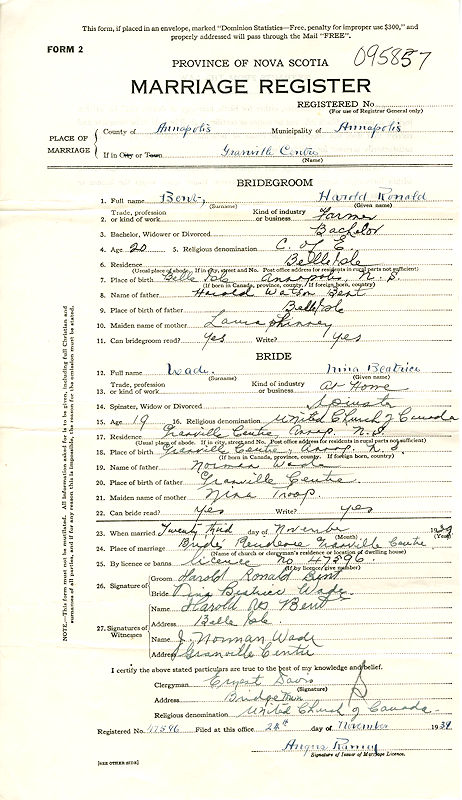 This form, if placed in an envelope, marked "Dominion Statistics—Free, penalty for improper use $300," and
properly addressed will pass through the Mail "FREE".
FORM 2
095857
PROVINCE OF NOVA SCOTIA
MARRIAGE REGISTER
REGISTERED No
(For use of Registrar General only)
PLACE OF MARRIAGE
County of Annapolis Municipality of Annapolis
If in City or Town Granville Centre
(Name)
BRIDEGROOM
1. Full name Bent, Harold Ronald
(Surname) (Given name)
2. Trade, profession or kind of work Kind of industry or business Farmer
3. Bachelor, Widower or Divorced Bachelor
4. Age 20 5. Religious denomination C. of E.
6. Residence Belleisle
(Usual place of abode. If in city, street and No. Post office address for residents in rural parts not sufficient)
7. Place of birth Belle Isle Annapolis, N. S.
(If born in Canada, province, county. If foreign born, country)
8. Name of father Harold Watson Bent
9. Place of birth of father Belleisle
10. Maiden name of mother Laura Phinney
11. Can bridegroom read? Yes Write? yes
BRIDE
12. Full name Wade, Nina Beatrice
(Surname) (Given name)
13. Trade, profession or kind of work Kind of industry or business At Home
14. Spinster, Widow or Divorced Spinster
15. Age 19 16. Religious denomination United Church of Canada
17. Residence Granville Centre, Annap. N.S
(Usual place of abode. If in city, street and No. Post office address for residents in rural parts not sufficient)
18. Place of birth Granville Centre, Annap. N. S.
(If born in Canada, province, county. If foreign born, country)
19. Name of father Norman Wade
20. Place of birth of father Granville Centre.
21. Maiden name of mother Nina Troop
22. Can bride read? yes Write? yes
23. When married Twenty third day of November 1939
(Month) (Year)
24. Place of marriage Brides Residence Granville Centre
(Name of church or clergyman's residence or location of dwelling house)
25. By licence or banns Licence No 47596
(If by licence give number)
26. Signature of
Groom Harold Ronald Bent
Bride Nina Beatrice Wade
27. Signatures of Witnesses
Name Harold W Bent
Address Belle Isle
Name J. Norman Wade
Address Granville Centre
I certify the above stated particulars are true to the best of my knowledge and belief.
Clergyman Ernest Davis
(Signature)
Address Bridgetown
Religious denomination United Church of Canada
Registered No. 47596 Filed at this office 28th day of November 1939
Angus
Signature of Issuer of Marriage Licence.
[SEE OTHER SIDE]
NOTE.—This form must not be mutilated. All information asked for is to be given, including full Christian and
surnames of all parties, and if for any reason this is impossible, the reason for the omission must be stated.